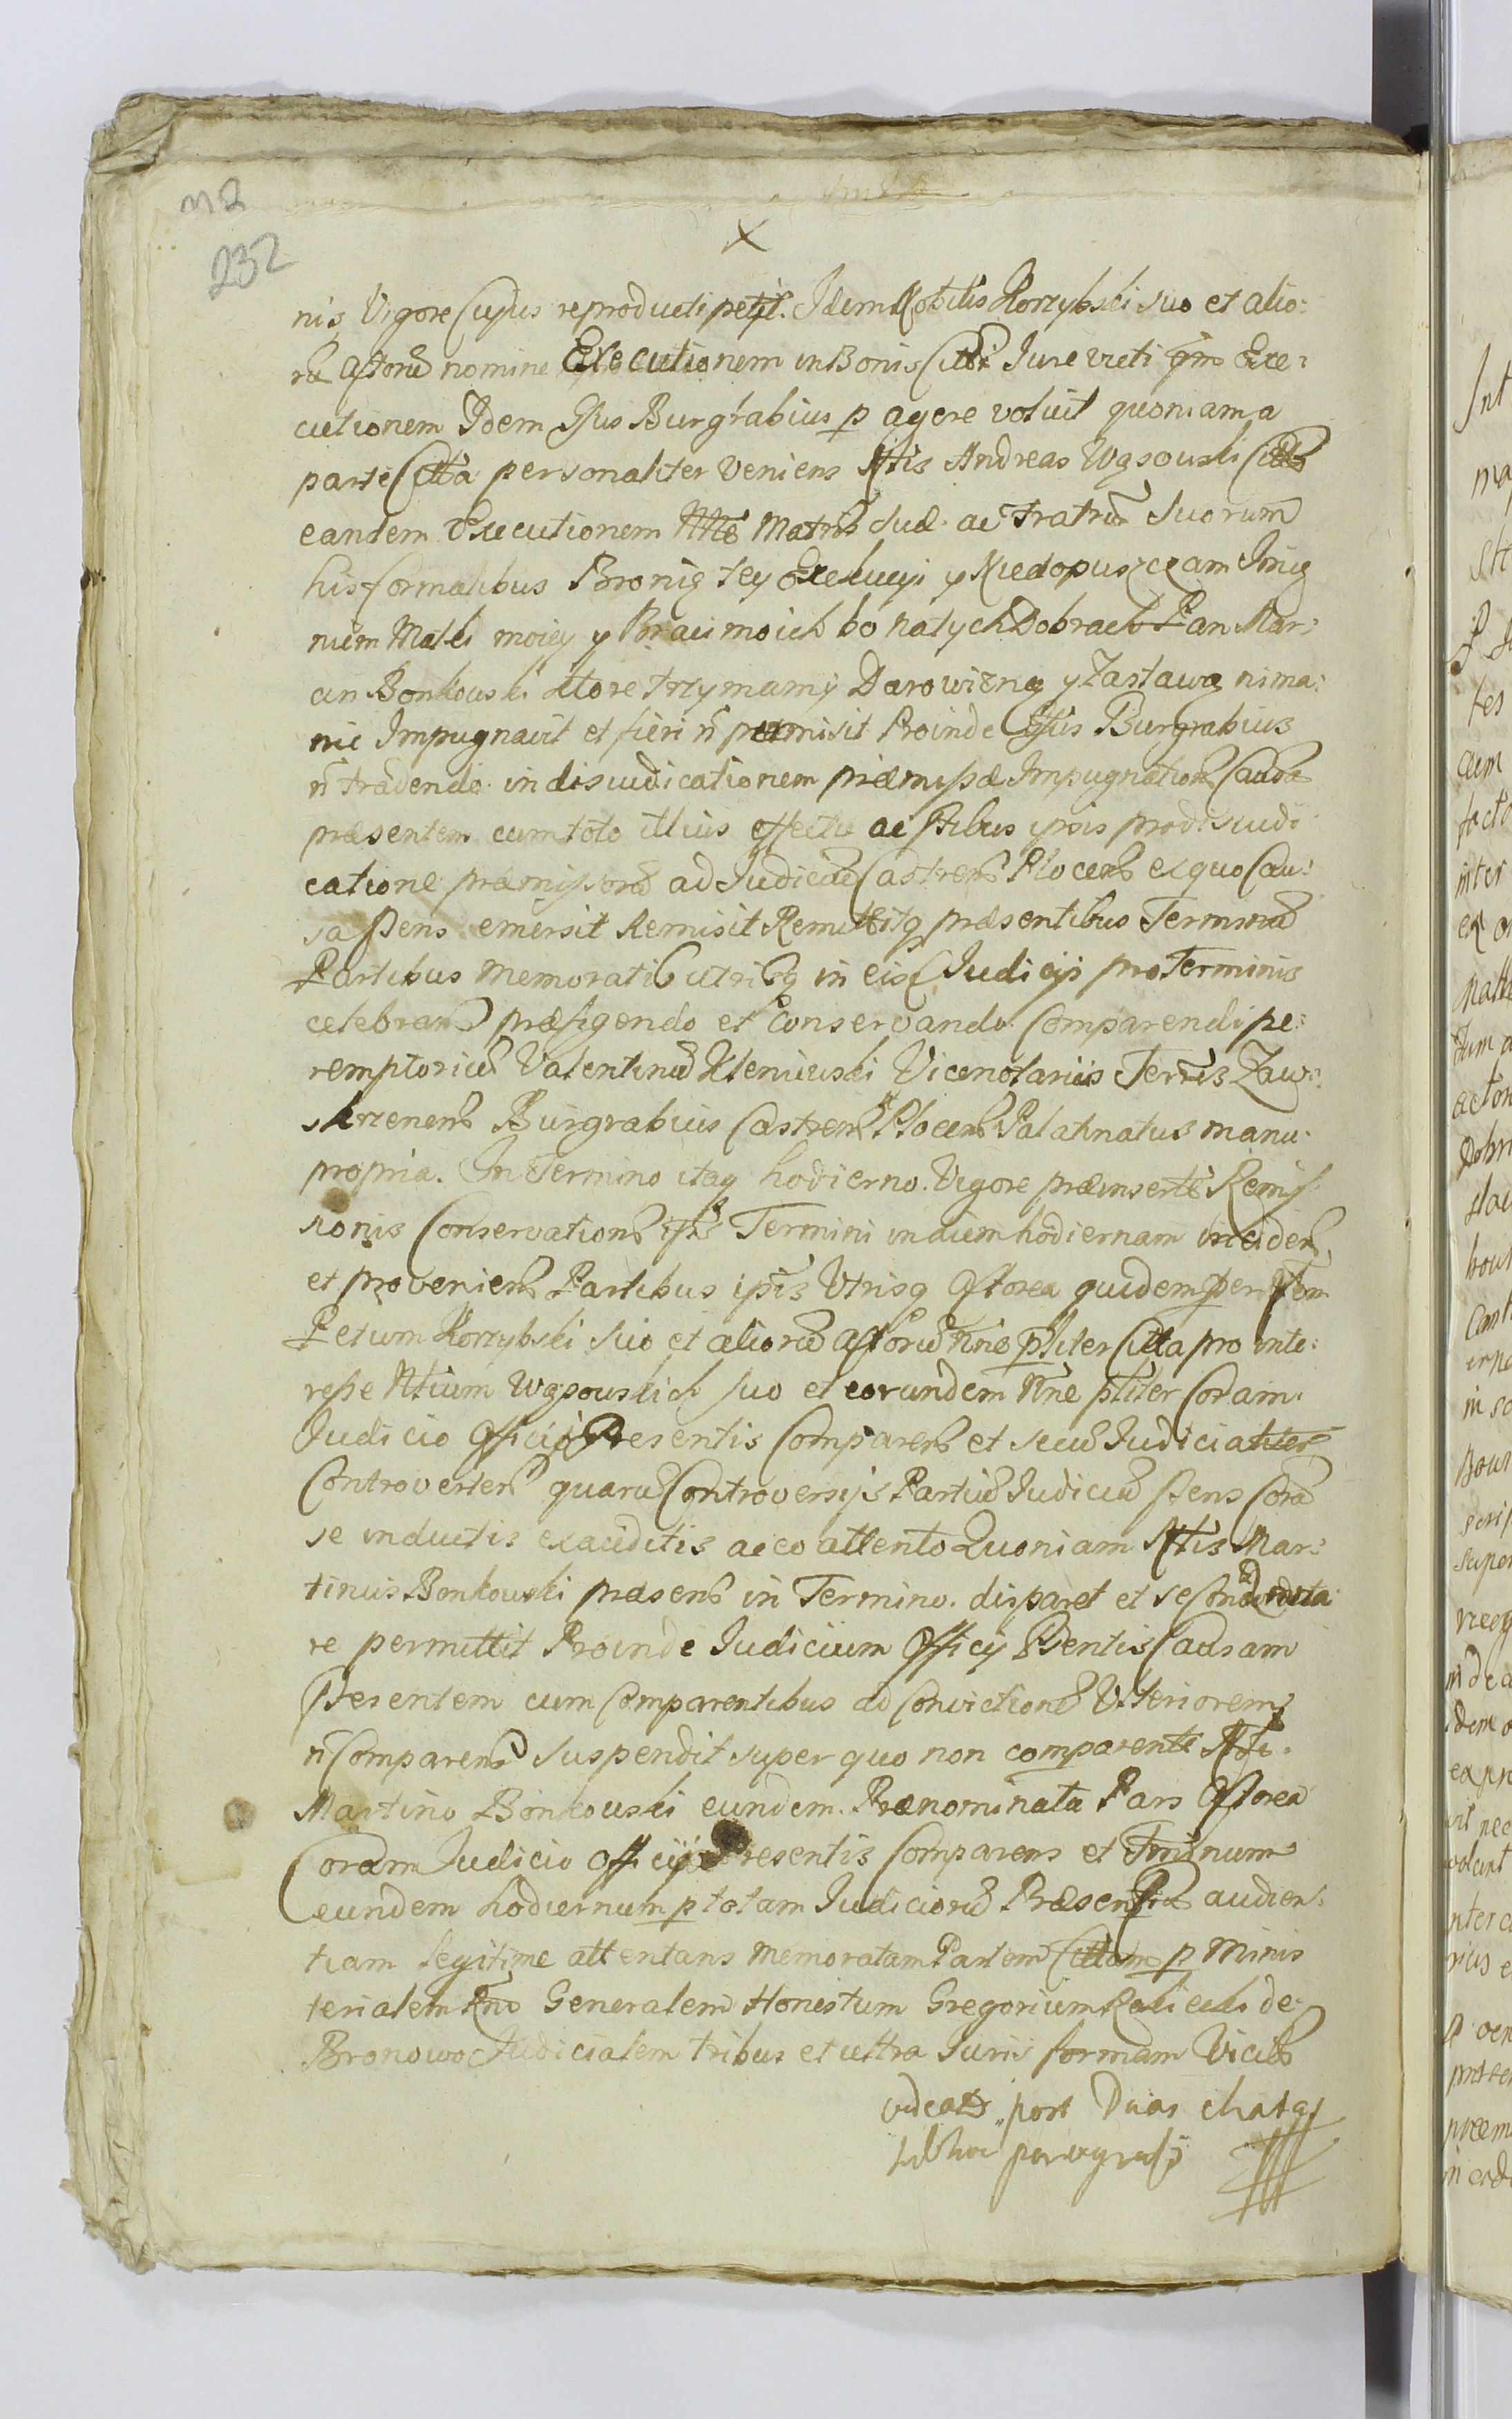 232
X
nis Vigore Cujus reproducti petit. Idem Nobilis Korzybski suo et alio:
rū Actorū nomine Executionem in Bonis Jure victi Exe:
cutionem Idem Gsus Burgrabius p agere voluit quoniam a
parte Citta personaliter Veniens Nttis Andreas Wąsowski
eandem Executionem Matris suæ ac Fratrū Suorum
his formalibus Bronię tey Exekucyi y Niedopuszczam Imię
niem Matki moiey y Braci moich bo na tych Dobrach Pan Mar:
cin Bonkowski ktore trzymamy Darowizną y Zastawą nima:
nic Impugnavit et fieri ñ permisit Proinde Gsus Burgrabius
ñ tradendo in disiudicationem præmissæ Impugnation Causā
præsentem cum toto illius effectu ac Ptibus ipsis pro disiudi
catione præmissorū ad Judiciū Castren Plocen ex quo Cau:
sa Psens emersit Remisit Remittitq præsentibus Terminū
Partibus memoratis utrisq in eisd Judicijs pro Terminis
celebran præfigendo et Conservando Comparendi pe:
remptoriū Valentinus Kleniewski Vicenotarius Terris Zaw:
skrzenen Burgrabius Castren Plocen Palatinatus manu
propria. In Termino itaq hodierno. Vigore præinsertæ Remis
sionis Conservation ipsis Termini in diem hodiernam inciden
et provenien Partibus ipsis Utrisq Actorea quidem per Ntem
Petrum Korzybski suo et aliorū Actorū nne pliter Citta pro inte:
resse Nttium Wąsowskich suo et eorundem Nne pliter Coram
Judicio Officij Presentis Comparen et secū Judicialiter
Controverten quarū Controversijs Partiū Judiciū Psens Corā
se inductis exauditis ac eo attento Quoniam Nttis Mar:
tinus Bonkowski præsens in Termino disparet et se
re permittit Proinde Judicium Officij Psentis Causam
Presentem cum Comparentibus ad Convictionē Ulteriorem
ñ Comparen suspendit super quo non comparente
Martino Bonkowski eundem. Prænominata Pars Actorea
Coram Judicio Officij Presentis Comparens et Tminum
eundem hodiernum p totam Judiciorū Præsentiū audien:
tiam legitime attentans memoratam Partem Cittam p Minis
terialem Rni Generalem Honestum Gregorium de
Bronowo Judicialem tribus et ultra Juris formam Vicib
videatr post Duas chartas
paragrafi